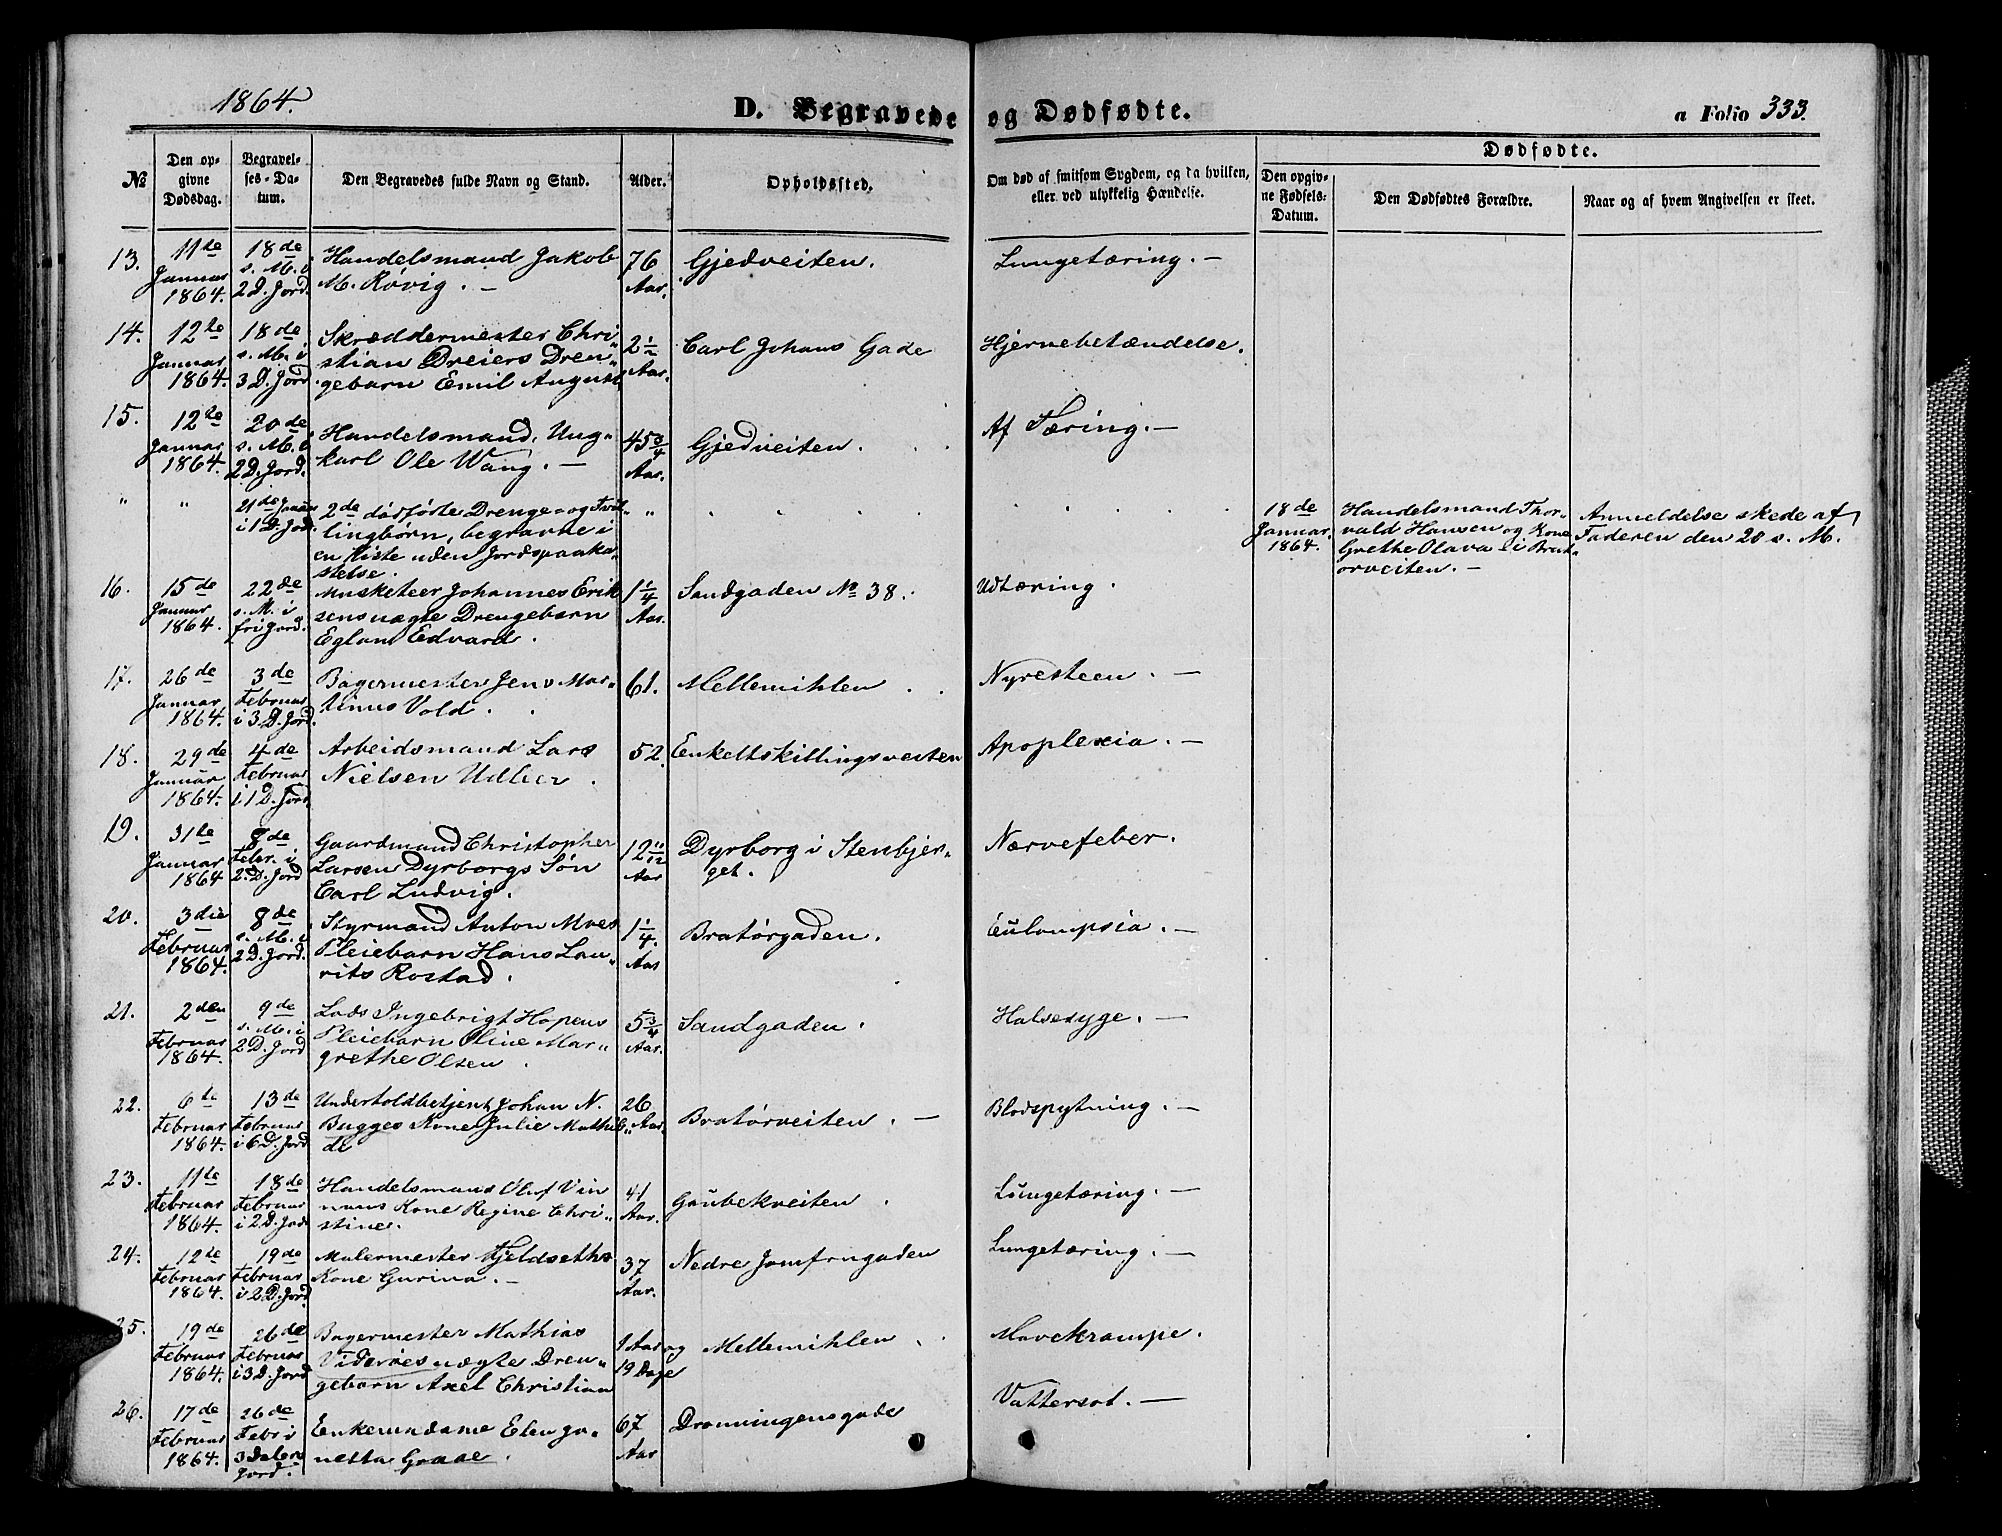 1864.
D. Begravede og Dødfødte.
a Folio 333.
№
Den opgivne Dødsdag.
Begravelses-Datum.
Den Begravedes fulde Navn og Stand.
Alder.
Opholdssted.
Om død af smitsom Sygdom, og da hvilken, eller ved ulykkelig Hændelse.
Dødfødte.
Den opgivne Fødsels-Datum.
Den Dødfødtes Forældre.
Naar og af hvem Angivelsen er skeet.
13. 11te Januar 1864. 18de s. M. i 2 D. Jord. Handelsmand Jakob M. Røvig. — 76 Aar. Gjedveiten. Lungetæring. —
14. 12te Januar 1864. 18de s. M. i 3 D. Jord Skræddermester Christian Dreiers Drengebarn Emil August 2 1/2 Aar. Carl Johans Gade Hjernebetændelse.
15. 12te Januar 1864. 20de s. M. i 2 D. Jord. Handelsmand, Ungkarl Ole Wang. — 45 3/4 Aar. Gjedveiten. Af Tæring. —
" " 21de Januar i 1 D. Jord. 2de dødfødte Drenge- og Tvillingbørn, begravne i en Kiste uden Jordspaakastelse. " 18de Januar 1864. Handelsmand Thorvald Hansen og Kone Grethe Olava i Bratørveiten. — Anmeldelse skede af Faderen den 20 s. M.
16. 15de Januar 1864. 22de s. M. i fri Jord. Musketeer Johannes Eriksens uægte Drengebarn Eglan Edvard. 1 1/4 Aar. Sandgaden № 38. Udtæring.
17. 26de Januar 1864. 3de Februar i 3 D. Jord. Bagermester Jens Martinus Vold. 61. Mellemihlen. Nyresteen. —
18. 29de Januar 1864. 4de Februar i 1 D. Jord. Arbeidsmand Lars Nielsen Udlier. 52. Enkeltskillingsveiten Apoplexia. —
19. 31te Januar 1864 8de Febr. i 2. D. Jord Gaardmand Christopher Larsen Dyrborgs Søn Carl Ludvig. 12 11/12 Aar Dyrborg i Stenbjerget. Nærvefeber.
20. 3die Februar 1864. 8de s. M. i 2 D. Jord. Styrmand Anton Moes Pleiebarn Hans Laurits Rostad. 1 1/4. Aar Bratørgaden. Eulampsia. —
21. 2den Februar 1864. 9de s. M. i 2 D. Jord Lods Ingebrigt Hopens Pleiebarn Oline Margrethe Olsen. 5 3/4 Aar. Sandgaden. Halssyge. —
22. 6te Februar 1864. 13de Februar i 6 D. Jord Undertoldbetjent Johan N. Bugges Kone Julie Mathilde 26 Aar. Bratørveiten. — Blodspytning. —
23. 11te Februar 1864. 18de Februar i 2 D. Jord Handelsmand Oluf Vinnans Kone Regine Christine. 41 Aar. Gaubekveiten. Lungetæring. —
24. 12te Februar 1864. 19de Februar i 2 D. Jord. Malermester Kjeldseths Kone Gurina. — 37 Aar. Nedre Jomfrugaden Lungetæring. —
25. 19de Februar 1864. 26de Februar i 3 D. Jord Bagermester Mathias Viderøes uægte Drengebarn Axel Christian 1 Aar og 19 Dage Mellemihlen. Mavekrampe.
26. 17de Februar 1864. 26de Febr i 3 Dalers Jord. Enkemadame Elen Janetta Graae. 67 Aar Dronningensgade Vattersot. —